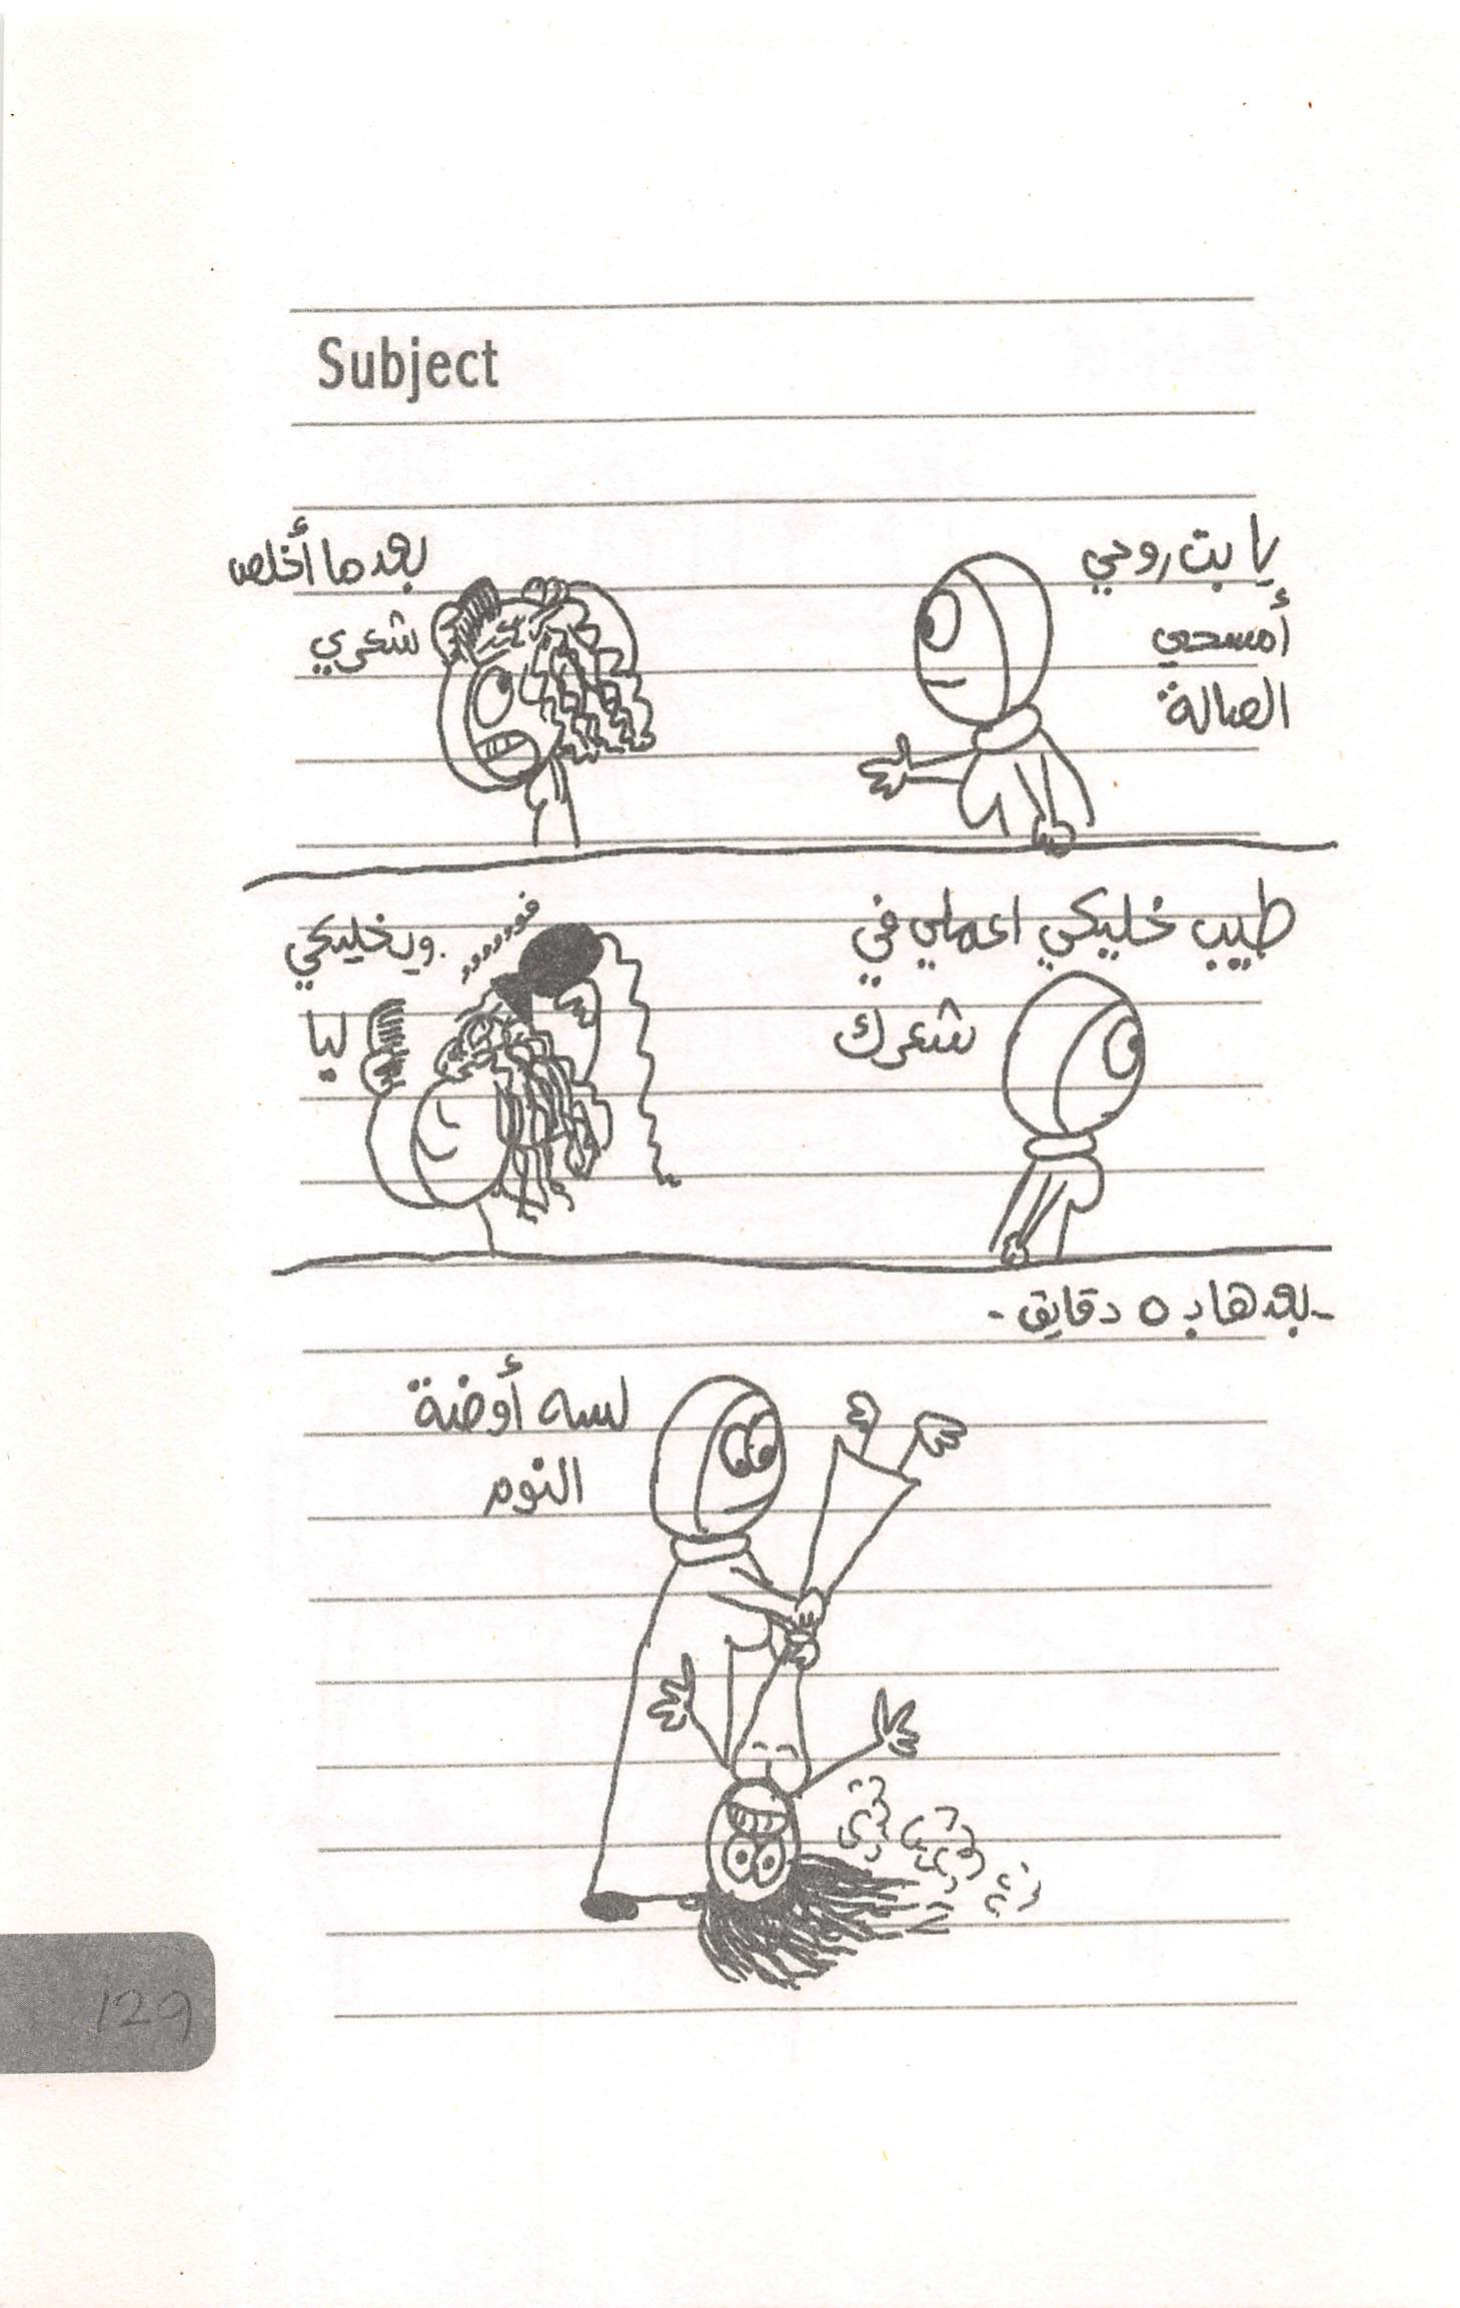 Subject
يا بت روحي
أمسحي
الصالة
بعد ما أخلص
شعري
طيب خليكي اعملي في
شعرك
فوررررر
ويخليكي
ليا
-بعدها بـ ٥ دقايق-
لسه أوضة
النوم
129